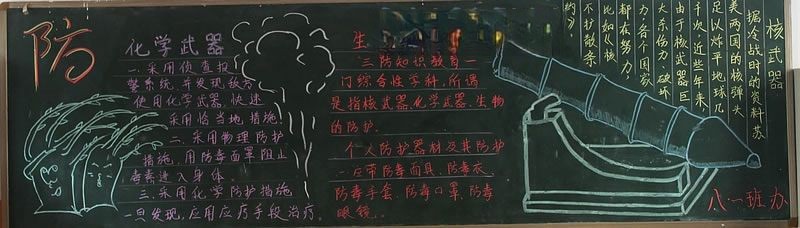 防
化学武器
一、采用侦查报
警系统,并发现敌方
使用化学武器,快速
采用恰当地措施。
二、采用物理防护
措施,用防毒面罩阻止
毒素进入身体。
三、采用化学防护措施
一旦发现,应用应疗手段治疗。
生
三防知识教育一
门综合性学科,所谓
是指核武器,化学武器,生物
的防护.
个人防护器材及其防护
一应带防毒面具、防毒衣、
防毒手套、防毒口罩、防毒
眼镜.
核武器
据冷战时的资料苏
美两国的核弹头
足以炸平地球几
千次,近些年来,
由于核武器巨
大杀伤力,破坏
力各个国家
都在努力,
比如《核
不扩散条
约》。
八一班办